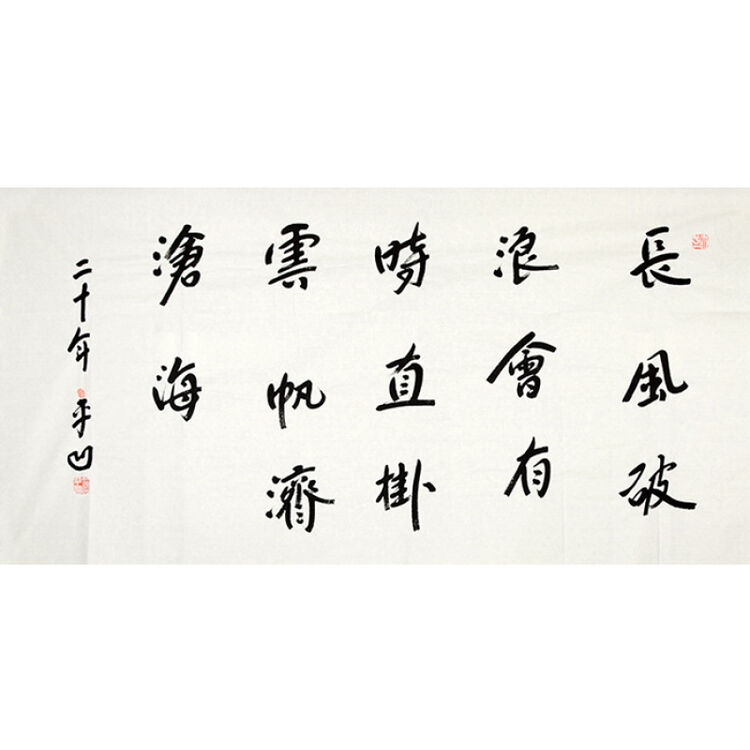 長風破
浪會有
時直掛
雲帆濟
滄海
二十年 平凹